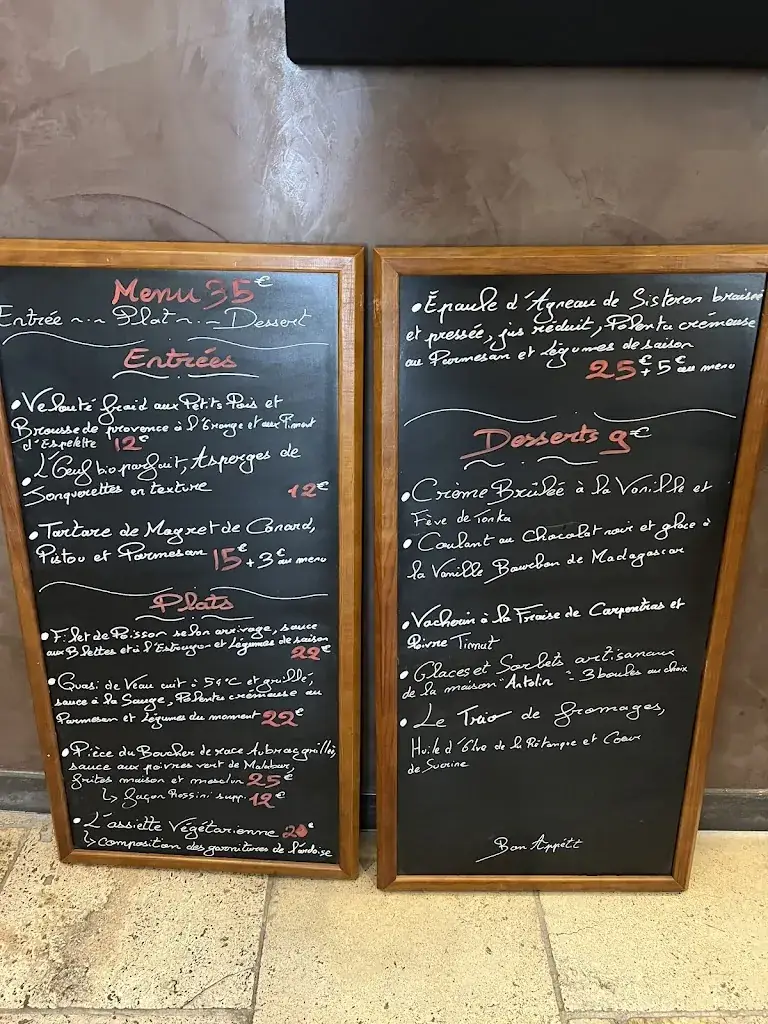 Menu 35€
Entrée ~.~ Plat ~.~ Dessert
Entrées
• Velouté froid aux Petits Pois et
Brousse de provence à l'Orange et aux Piment
d'Espelette 12€
• L'Oeuf bio parfait, Asperges de
Jonquerettes en texture 12€
• Tartare de Magret de Canard,
Pistou et Parmesan 15€ + 3€ au menu
Plats
• Filet de Poisson selon arrivage, sauce
aux Blettes et à l'Estragon et Légumes de saison
22€
• Quasi de Veau cuit à 54°C et grillé,
sauce à la Sauge, Polenta crémeuse au
Parmesan et Légumes du moment 22€
• Pièce du Boucher de race Aubrac grillée,
sauce aux poivres vert de Malabar,
frites maison et mesclun 25€
↳ façon Rossini supp. 12€
• L'assiette Végétarienne 20€
↳ composition des garnitures de l'ardoise
• Épaule d'Agneau de Sisteron braisée
et pressée, jus réduit, Polenta crémeuse
au Parmesan et Légumes de saison
25€ + 5€ au menu
Desserts 9€
• Crème Brûlée à la Vanille et
Fève de Tonka
• Coulant au Chocolat noir et glace à
la Vanille Bourbon de Madagascar
• Vacherin à la Fraise de Carpentras et
Poivre Timut
• Glaces et Sorbets artisanaux
de la maison "Antolin" - 3 boules au choix
• Le Trio de fromages,
Huile d'Olve de la Rétanque et Coeur
de Sucrine
Bon Appétit